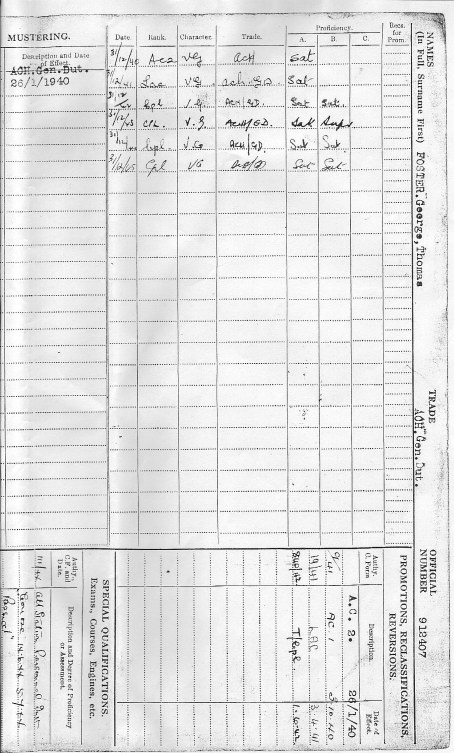 MUSTERING.
Description and Date
of Effect.
ACH.Gen.Dut.
26/1/1940
Date Rank. Character. Trade. Proficiency. Recs.
for
Prom.
A. B. C.
31/12/40 AC2 VG ACH Sat
31/12/41 VG ach. GD Sat
31/12 Cpl V.G. ACH/GD. Sat Sat.
31/12/43 CPL. V.G. ACH/GD. Sat Sup
31/12 Cpl. V.G ACH/GD. Sat Sat
31/12/45 Cpl VG Sat Sat
NAMES
(In Full, Surname First) FOSTER. George, Thomas
TRADE
ACH. Gen. Dut.
OFFICIAL
NUMBER 912407
PROMOTIONS, RECLASSIFICATIONS,
REVERSIONS.
Authy.
C. Form Description. Date of
Effect.
A.C. 2. 26/1/40
9/41 AC.1 3.10.40
19/41 3.4.41
T/Cpl 1.4.42
SPECIAL QUALIFICATIONS.
Exams., Courses, Engines, etc.
Authy.
C.F. and
Date. Description and Degree of Proficiency
or Assessment.
All Station Personnel
"Passed"